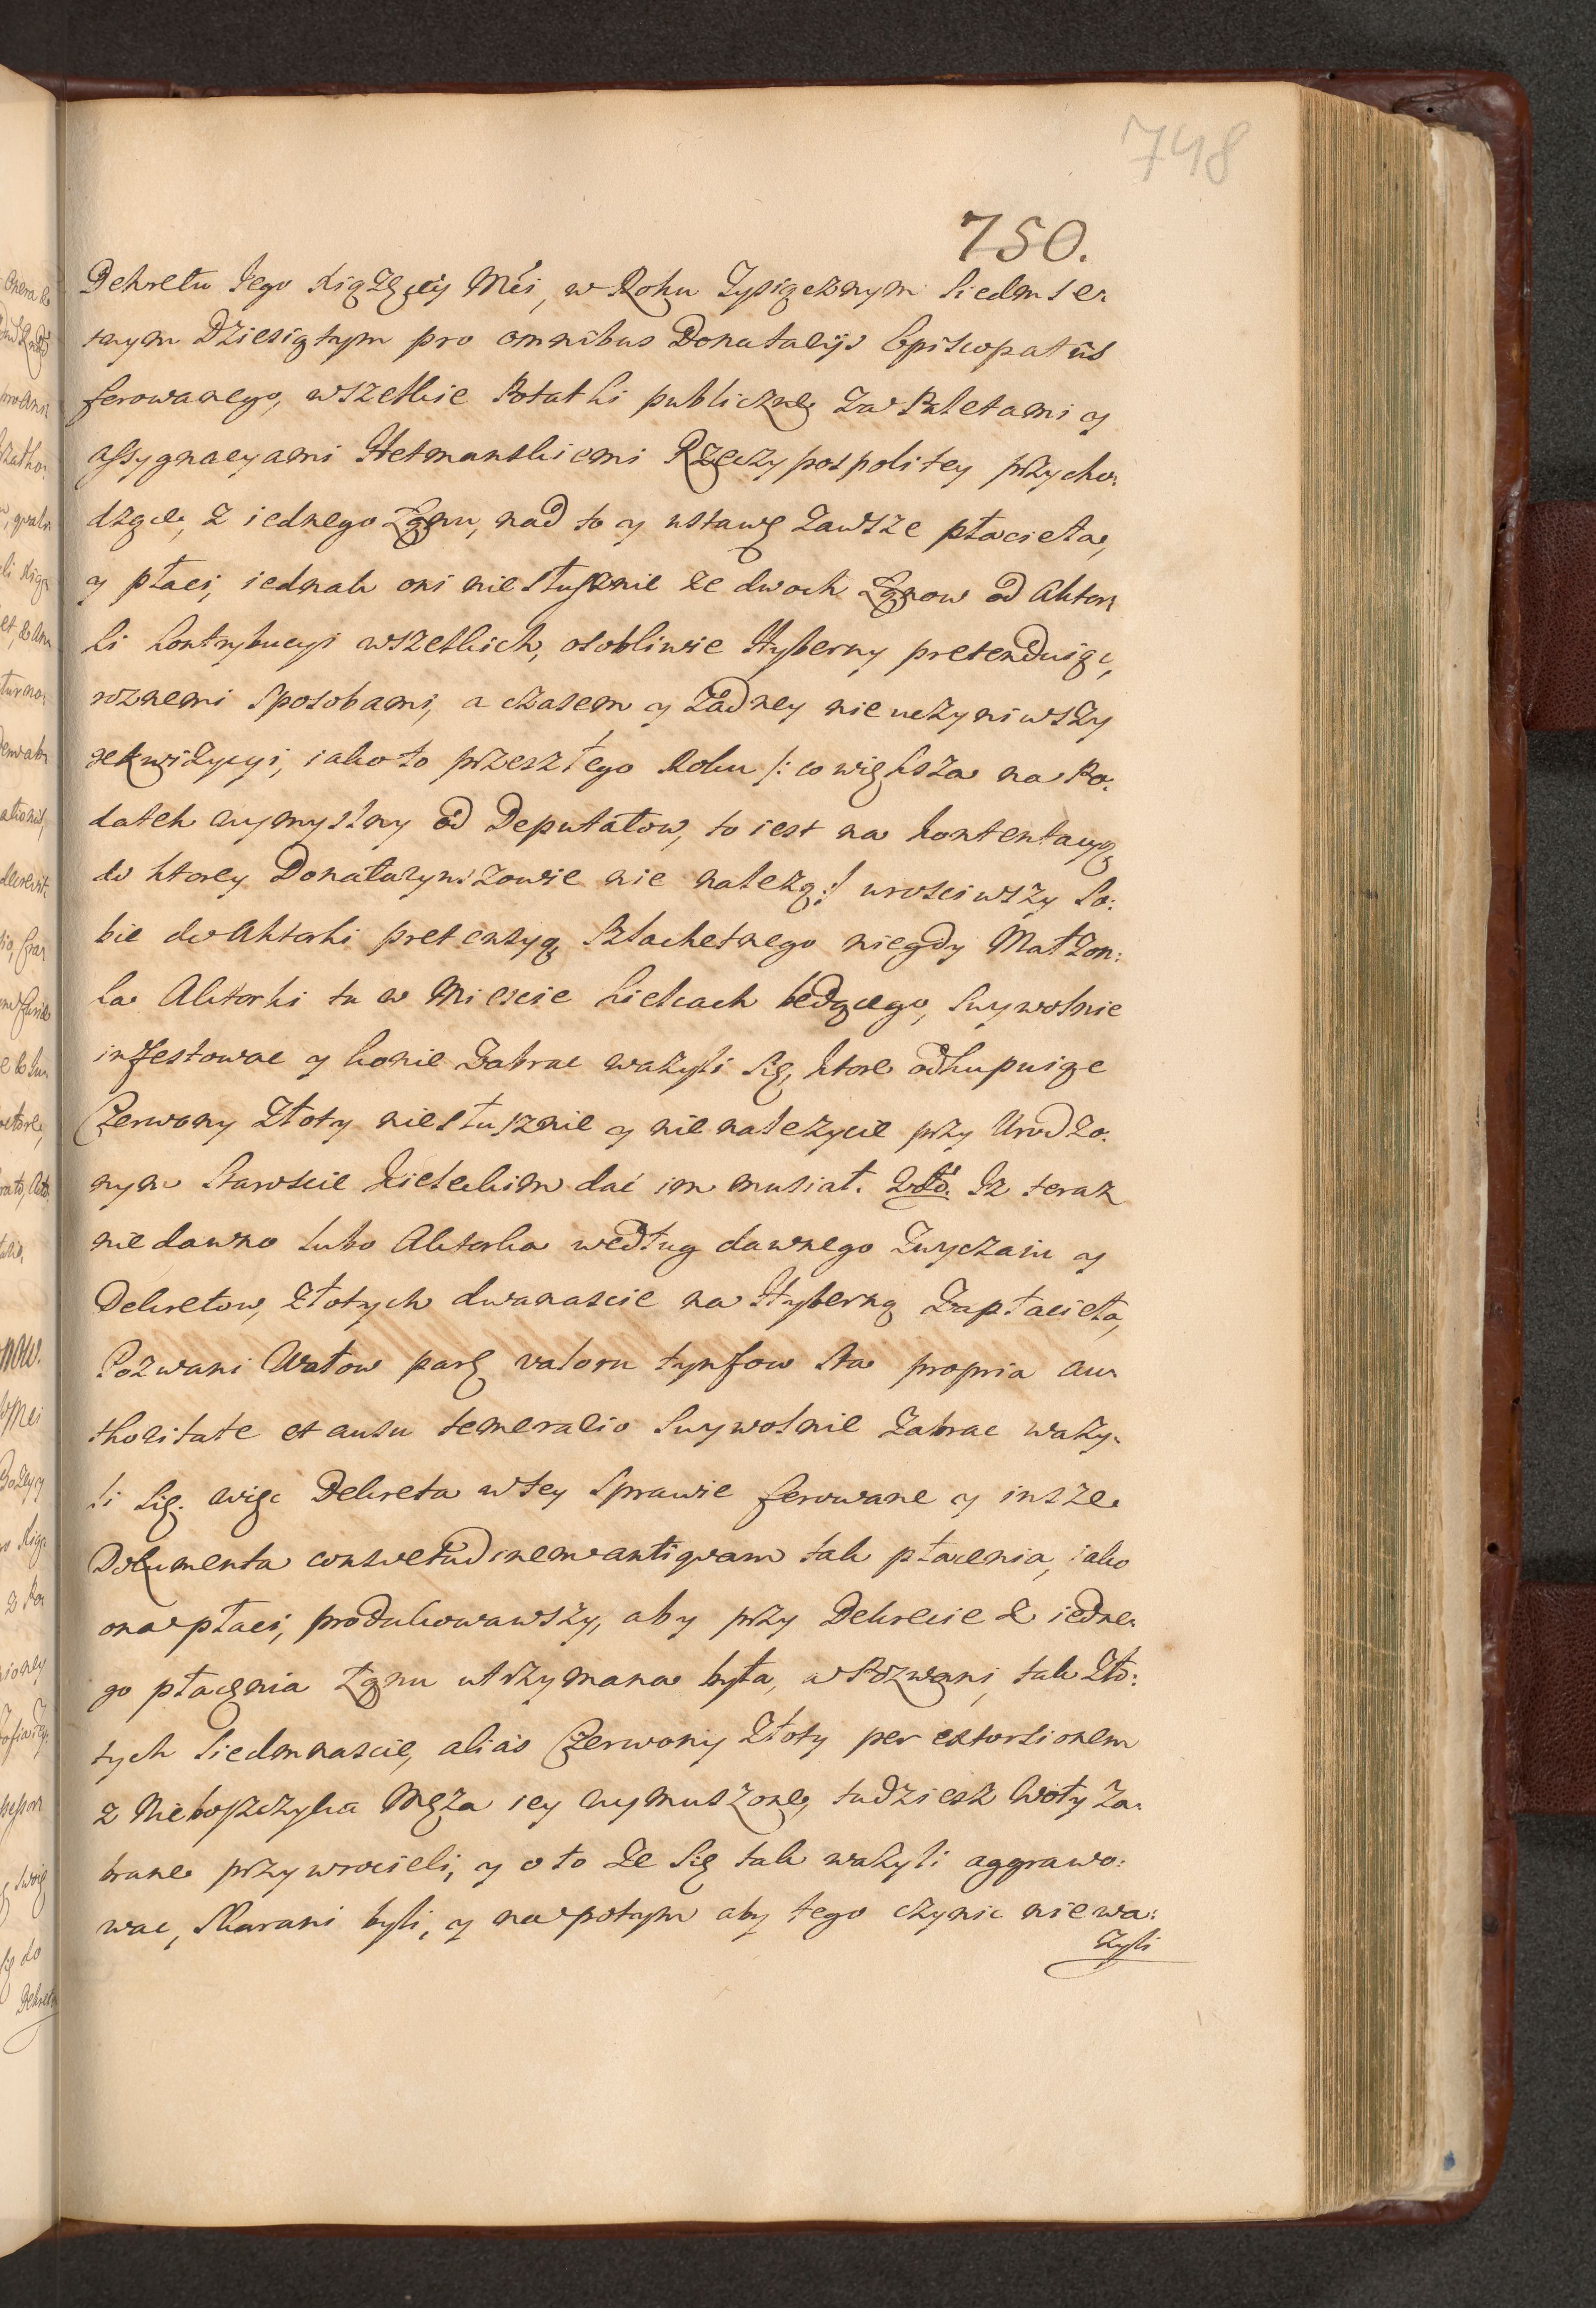 748
750.
Dekretu Jego Xiążęcey Mści, w Roku Tysiącznym Siedmset
nym Dziesiątym pro omnibus Donatarijs Episcopatûs
ferowanego, wszelkie Podatki publiczne za Paletami y
assygnacyami Hetmanskiemi Rzeczypospolitey przycho„
dzące, z iednego Łanu, nad to y ustawę zawsze płaciła,
y płaci, iednak oni niesłusznie ze dwoch Łanow od Aktor„
ki kontrybucyi wszelkich, osobliwie Hyberny pretenduiąc,
roznemi sposobami, a czasem y żadney nieuczyniwszy
rekwizycyi, iako to przeszłego Roku /: co większa na Po:
datek wymyślny od Deputatow, to iest na kontentacyą
do ktorey Donataryuszowie nie należą :/ urościwszy So:
bie do Aktorki pretensyą Szlachetnego niegdy Małżon:
ka Aktorki tu w Mieście Kielcach będącego, swywolnie
infestowac y konie zabrac ważyli się, ktore odkupuiąc
Czerwony Złoty niesłusznie y nienależycie przy Urodzo„
nym Staroście Kieleckim dać im musiał. 2dó. Iż teraz
niedawno lubo Aktorka według dawnego zwyczaiu y
Dekretow, Złotych dwanaście na Hybernę zapłaciła,
Pozwani Wołow parę valoru tynfow sta propria au„
thoritate et ausu temerario swywolnie zabrac waży„
li się. więc Dekreta w tey Sprawie ferowane y insze
Dokumenta consvetudinem antiqvam tak płacenia, iako
ona płaci, produkowawszy, aby przy Dekrecie z iedne„
go płacenia Łanu utrzymana była, a Pozwani, tak Zło:
tych siedmnaście, alias Czerwony Złoty per extorsionem
z Nieboszczyka Męża iey wymuszone, tudziesz Woły za„
brane przywrocili, y o to że się tak ważyli aggrawo:
wac, skarani byli, y na potym aby tego czynic nie wa:
żyli